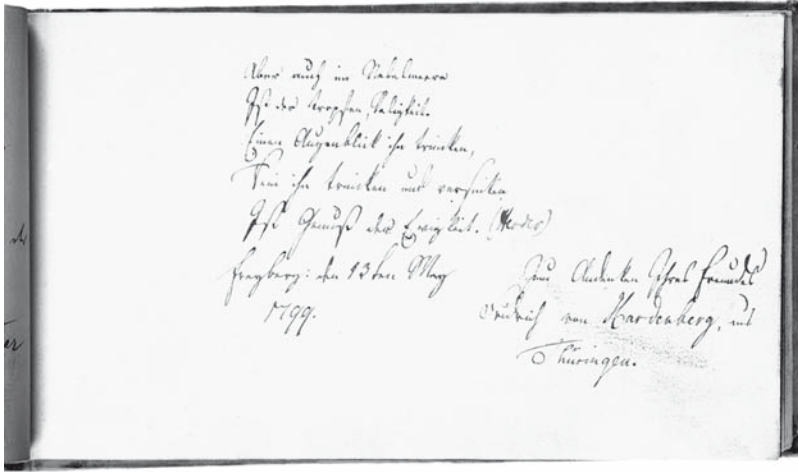 Aber auch im Nebelmeere
Ist der Tropfen, Seligkeit.
Einen Augenblick ihn trinken,
Rein ihn trinken und versinken
Ist Genuß der Ewigkeit. (Herder)
Freyberg: den 13ten May
1799.
Zum Andenken Ihres Freundes
von Hardenberg, aus
Thüringen.